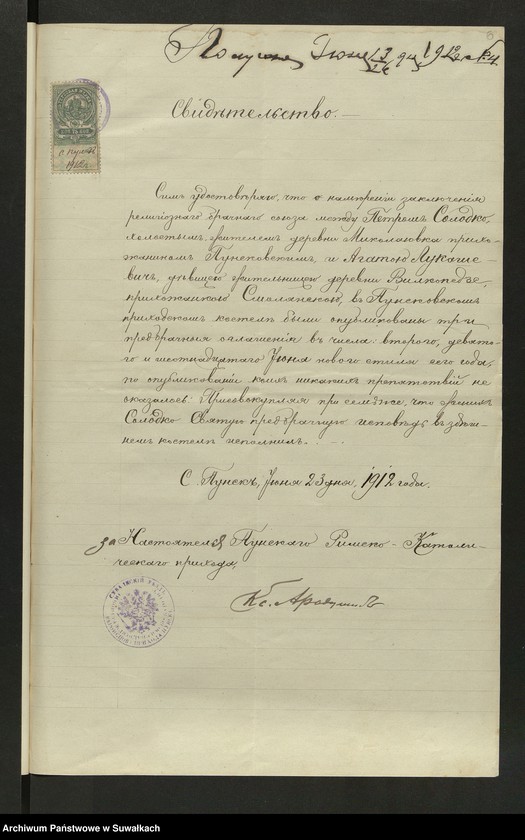 Получена Іюня 13/26 дня 1912 г. №4.
6
Свидѣтельство.—
Симъ удостовѣряю, что о намѣреніи заключенія
религіознаго брачнаго союза между Петромъ Солодко,
холостымъ, жителемъ деревни Миколаювка прихо-
жаниномъ Пунсковскимъ, и Агатою Лукаше-
вичъ, дѣвицею жительницею деревни Вилкопедзе,
прихожанкою Смолянскою, въ Пунсковскомъ
приходскомъ костелѣ были опубликованы три
предбрачныя оглашенія въ числа: второго, девято-
го и шестнадцатаго Іюня новаго стиля сего года,
по опубликованіи коихъ никакихъ препятствій не
оказалось. Присовокупляя при семъ же, что
Солодко Святую предбрачную исповѣдь въ здѣш-
немъ костелѣ исполнилъ.
С. Пунскъ, Іюня 23 дня, 1912 года.
за Настоятеля Пунскаго Римско-Католи-
ческаго прихода,
Кс.
Archiwum Państwowe w Suwałkach